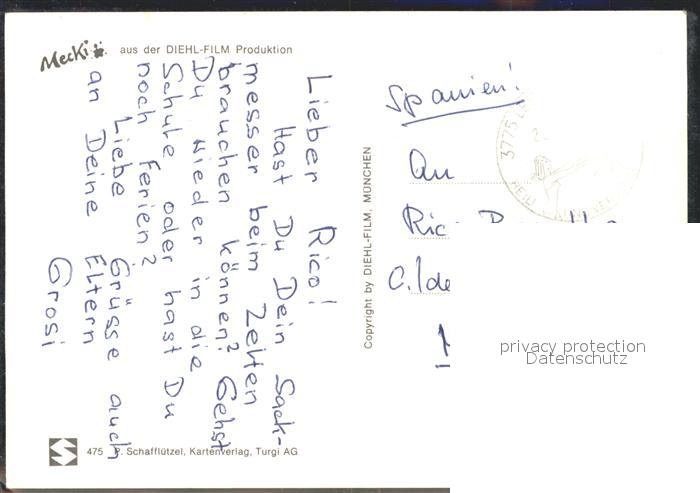 Mecki aus der DIEHL-FILM Produktion
Lieber Rico!
Hast Du Dein Sack-
messer beim Zelten
brauchen können? Gehst
Du wieder in die
Schule oder hast Du
noch Ferien?
Liebe Grüsse auch
an Deine Eltern
Grosi
475 P. Schafflützel, Kartenverlag, Turgi AG
Copyright by DIEHL-FILM, MÜNCHEN
Spanien!
3775
HEIL
An
Ric
C. / de
privacy protection
Datenschutz